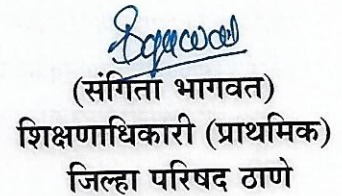 (संगिता भागवत)
शिक्षणाधिकारी (प्राथमिक)
जिल्हा परिषद ठाणे